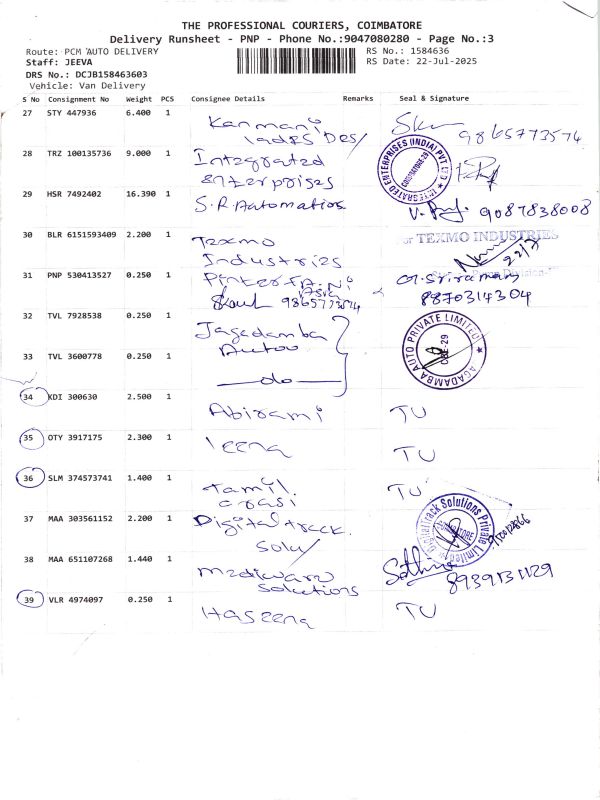 THE PROFESSIONAL COURIERS, COIMBATORE
Delivery Runsheet - PNP - Phone No.:9047080280 - Page No.:3
Route: PCM AUTO DELIVERY
RS No.: 1584636
Staff: JEEVA
RS Date: 22-Jul-2025
DRS No.: DCJB158463603
Vehicle: Van Delivery
S No Consignment No Weight PCS Consignee Details Remarks Seal & Signature
27 STY 447936 6.400 1 Kanmani 9865773574
28 TRZ 100135736 9.000 1 Integrated
Enterprises
INTEGRATED ENTERPRISES (INDIA) PVT. LTD
29 HSR 7492402 16.390 1 S.R Automation 9087838008
30 BLR 6151593409 2.200 1 Texmo
Industries
For TEXMO INDUSTRIES
22/7
31 PNP 530413527 0.250 1
9865773574
8870314304
32 TVL 7928538 0.250 1 Jagadamba
Autoo
AGADAMBA AUTO PRIVATE LIMITED
CBE-29
33 TVL 3600778 0.250 1 do
34 KDI 300630 2.500 1 Abirami TU
35 OTY 3917175 2.300 1 leena TU
36 SLM 374573741 1.400 1 Tamil TU
arasi
37 MAA 303561152 2.200 1 Digital track
Solu
Track Solutions Private Limited
38 MAA 651107268 1.440 1 Mediware
Solutions
8939131129
39 VLR 4974097 0.250 1 Haseena TU